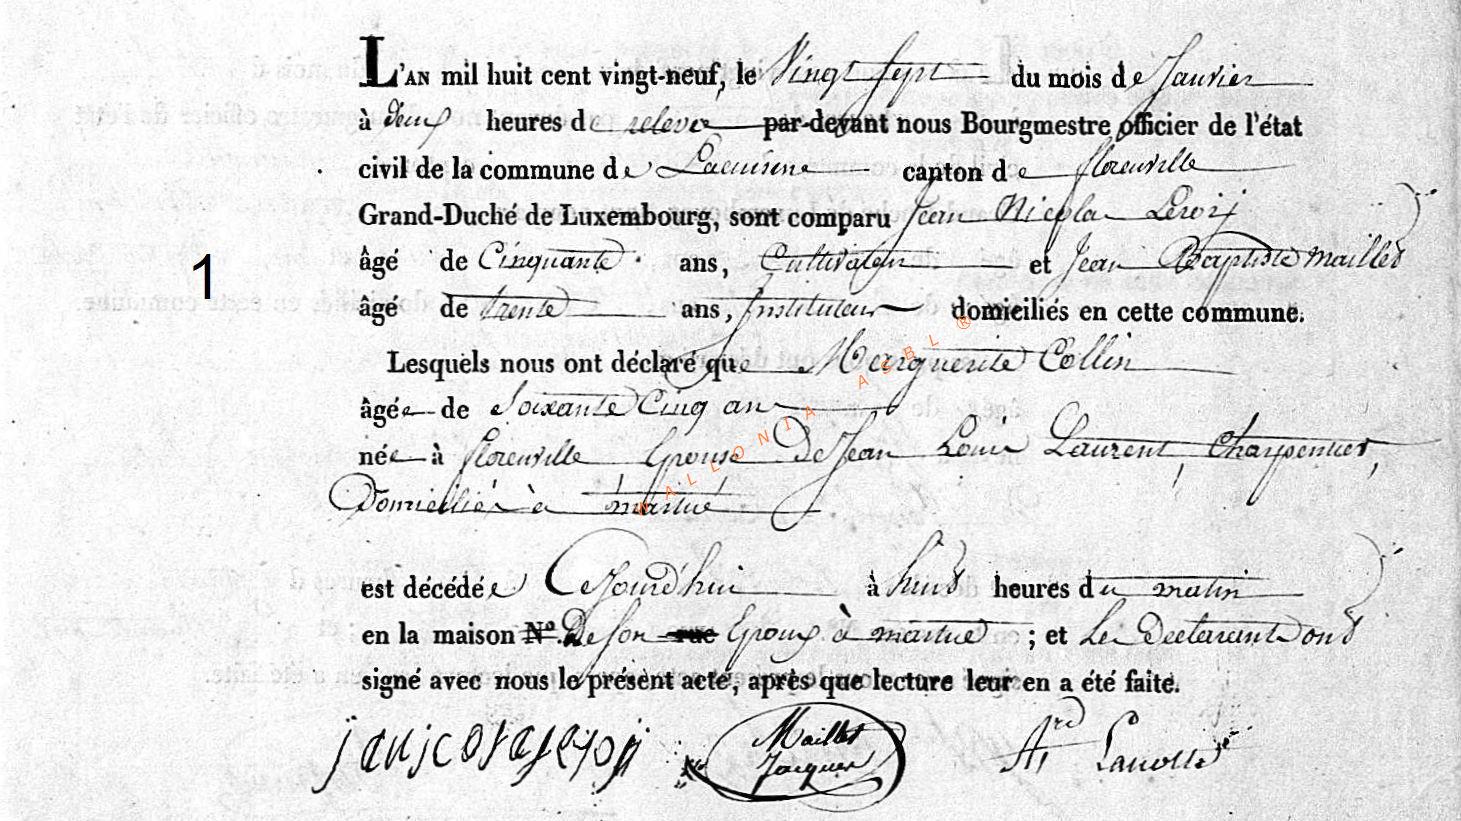 L'AN mil huit cent vingt-neuf, le Vingt sept du mois de Janvier
à deux heures de relevé par-devant nous Bourgmestre officier de l'état
civil de la commune de Lacuisine canton de florenville
Grand-Duché de Luxembourg, sont comparu Jean Nicolas Leroij
âgé de Cinquante ans, Cultivateur et Jean Baptiste Maillet
âgé de trente ans, Instituteur domiciliés en cette commune.
Lesquels nous ont déclaré que Marguerite Collin
âgée de Soixante Cinq ans
née à florenville Epouse De Jean Louis Laurent, Charpentier,
Domicilié à martué
1
est décédée Cejourd'hui à huit heures du matin
en la maison N.º De son rue Epoux à martué ; et Les Declarants ont
signé avec nous le présent acte, après que lecture leur en a été faite.
Maillet
Jacques
WALLONIA ASBL ®